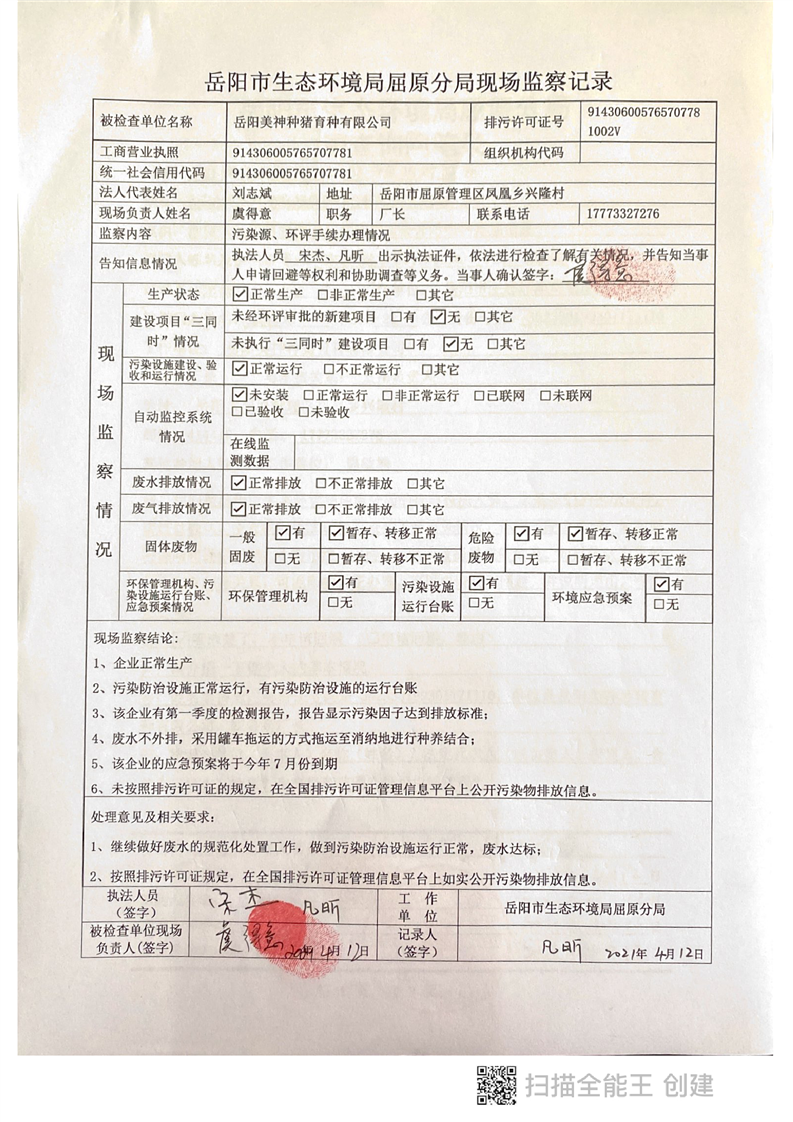 岳阳市生态环境局屈原分局现场监察记录
被检查单位名称 岳阳美神种猪育种有限公司 排污许可证号 91430600576570778
1002V
工商营业执照 914306005765707781 组织机构代码
统一社会信用代码 914306005765707781
法人代表姓名 刘志斌 地址 岳阳市屈原管理区凤凰乡兴隆村
现场负责人姓名 虞得意 职务 厂长 联系电话 17773327276
监察内容 污染源、环评手续办理情况
告知信息情况 执法人员 宋杰、凡昕 出示执法证件，依法进行检查了解有关情况，并告知当事
人申请回避等权利和协助调查等义务。当事人确认签字：虞得意
现场监察情况
生产状态 ☑正常生产 □非正常生产 □其它
建设项目“三同
时”情况
未经环评审批的新建项目 □有 ☑无 □其它
未执行“三同时”建设项目 □有 ☑无 □其它
污染设施建设、验
收和运行情况
☑正常运行 □不正常运行 □其它
自动监控系统
情况
☑未安装 □正常运行 □非正常运行 □已联网 □未联网
□已验收 □未验收
在线监
测数据
废水排放情况 ☑正常排放 □不正常排放 □其它
废气排放情况 ☑正常排放 □不正常排放 □其它
固体废物 一般
固废
☑有 ☑暂存、转移正常
□无 □暂存、转移不正常
危险
废物
☑有 ☑暂存、转移正常
□无 □暂存、转移不正常
环保管理机构、污
染设施运行台账、
应急预案情况
环保管理机构 ☑有
□无
污染设施
运行台账
☑有
□无
环境应急预案 ☑有
□无
现场监察结论：
1、企业正常生产
2、污染防治设施正常运行，有污染防治设施的运行台账
3、该企业有第一季度的检测报告，报告显示污染因子达到排放标准；
4、废水不外排，采用罐车拖运的方式拖运至消纳地进行种养结合；
5、该企业的应急预案将于今年7月份到期
6、未按照排污许可证的规定，在全国排污许可证管理信息平台上公开污染物排放信息。
处理意见及相关要求：
1、继续做好废水的规范化处置工作，做到污染防治设施运行正常，废水达标；
2、按照排污许可证规定，在全国排污许可证管理信息平台上如实公开污染物排放信息。
执法人员
（签字）
宋杰 凡昕
工作
单位
岳阳市生态环境局屈原分局
被检查单位现场
负责人(签字)
虞得意 2021年4月12日
记录人
（签字）
凡昕 2021年4月12日
扫描全能王 创建